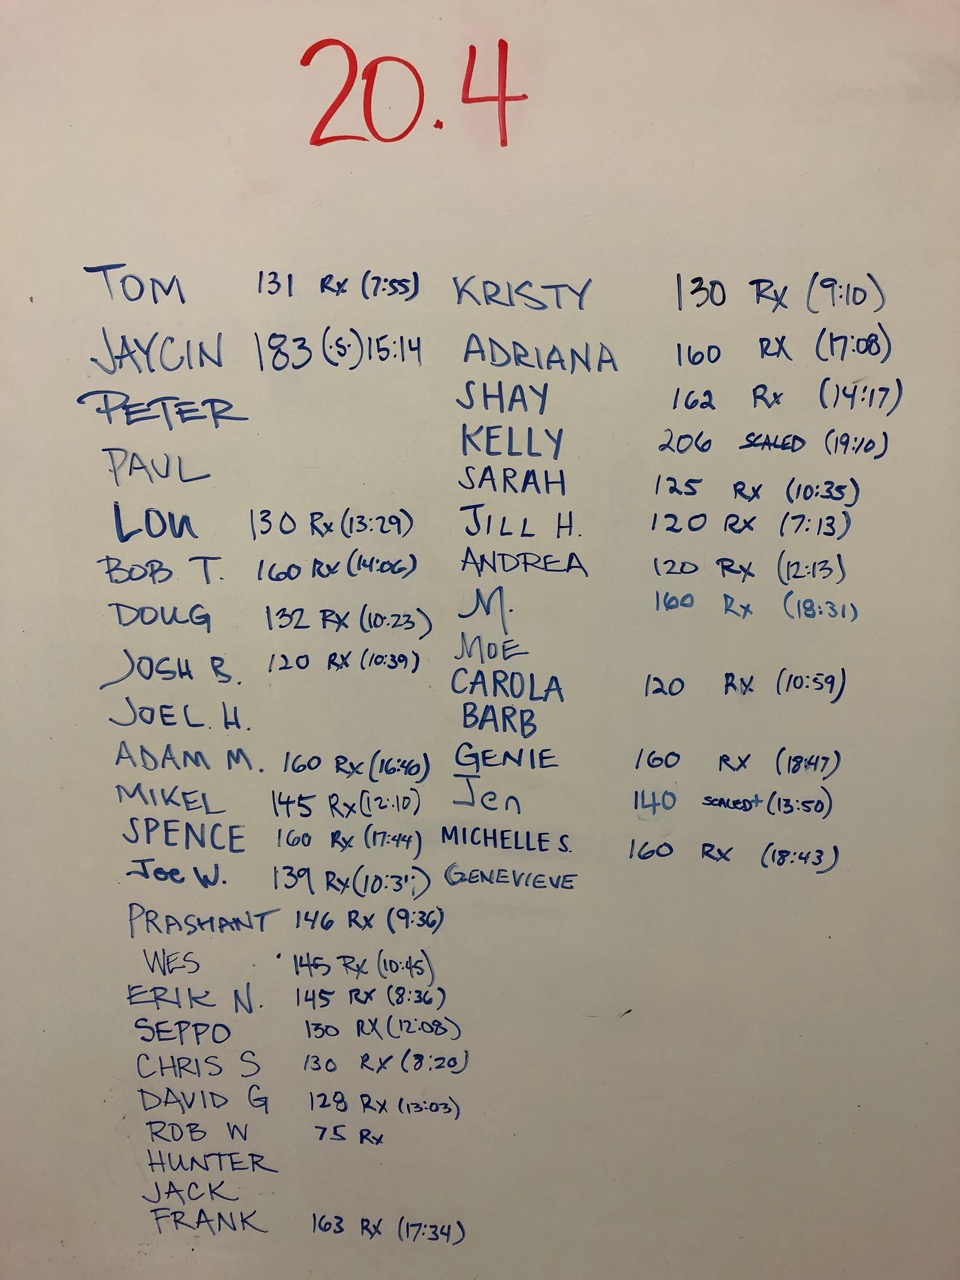 20.4
TOM 131 Rx (7:55)
JAYCIN 183 (S) 15:14
PETER
PAUL
LOU 130 Rx (13:29)
BOB T. 160 Rx (14:06)
DOUG 132 Rx (10:23)
JOSH B. 120 Rx (10:39)
JOEL H.
ADAM M. 160 Rx (16:40)
MIKEL 145 Rx (12:10)
SPENCE 160 Rx (17:44)
Joe W. 139 Rx
PRASHANT 146 Rx (9:36)
WES 145 Rx (10:45)
ERIK N. 145 Rx (8:36)
SEPPO 130 RX (12:08)
CHRIS S 130 Rx (8:20)
DAVID G 128 Rx (13:03)
ROB W 75 Rx
HUNTER
JACK
FRANK 163 Rx (17:34)
KRISTY 130 Rx (9:10)
ADRIANA 160 RX (17:08)
SHAY 162 Rx (14:17)
KELLY 206 SCALED (19:10)
SARAH 125 Rx (10:35)
JILL H. 120 RX (7:13)
ANDREA 120 Rx (12:13)
M. 160 Rx (18:31)
MOE
CAROLA 120 Rx (10:59)
BARB
GENIE 160 Rx (18:47)
Jen 140 SCALED+ (13:50)
MICHELLE S. 160 Rx (18:43)
GENEVIEVE